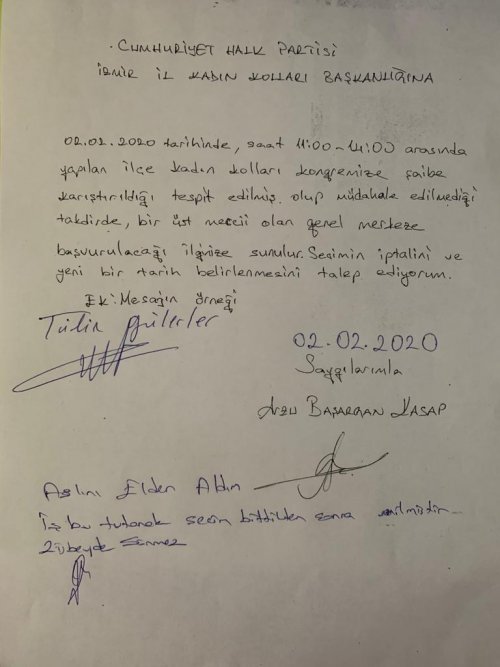 CUMHURİYET HALK PARTİSİ
İZMİR İL KADIN KOLLARI BAŞKANLIĞINA
02.02.2020 tarihinde, saat 11:00-14:00 arasında
yapılan ilçe kadın kolları kongremize şaibe
karıştırıldığı tespit edilmiş olup müdahale edilmediği
takdirde, bir üst mercii olan genel merkeze
başvurulacağı ilginize sunulur. Seçimin iptalini ve
yeni bir tarih belirlenmesini talep ediyorum.
Ek: Mesajın örneği
Tülin Gülerler
02.02.2020
Saygılarımla
Arzu BAŞARGAN KASAP
Aslını Elden Aldım
İş bu tutanak seçim bittikten sonra
Zübeyde Sönmez